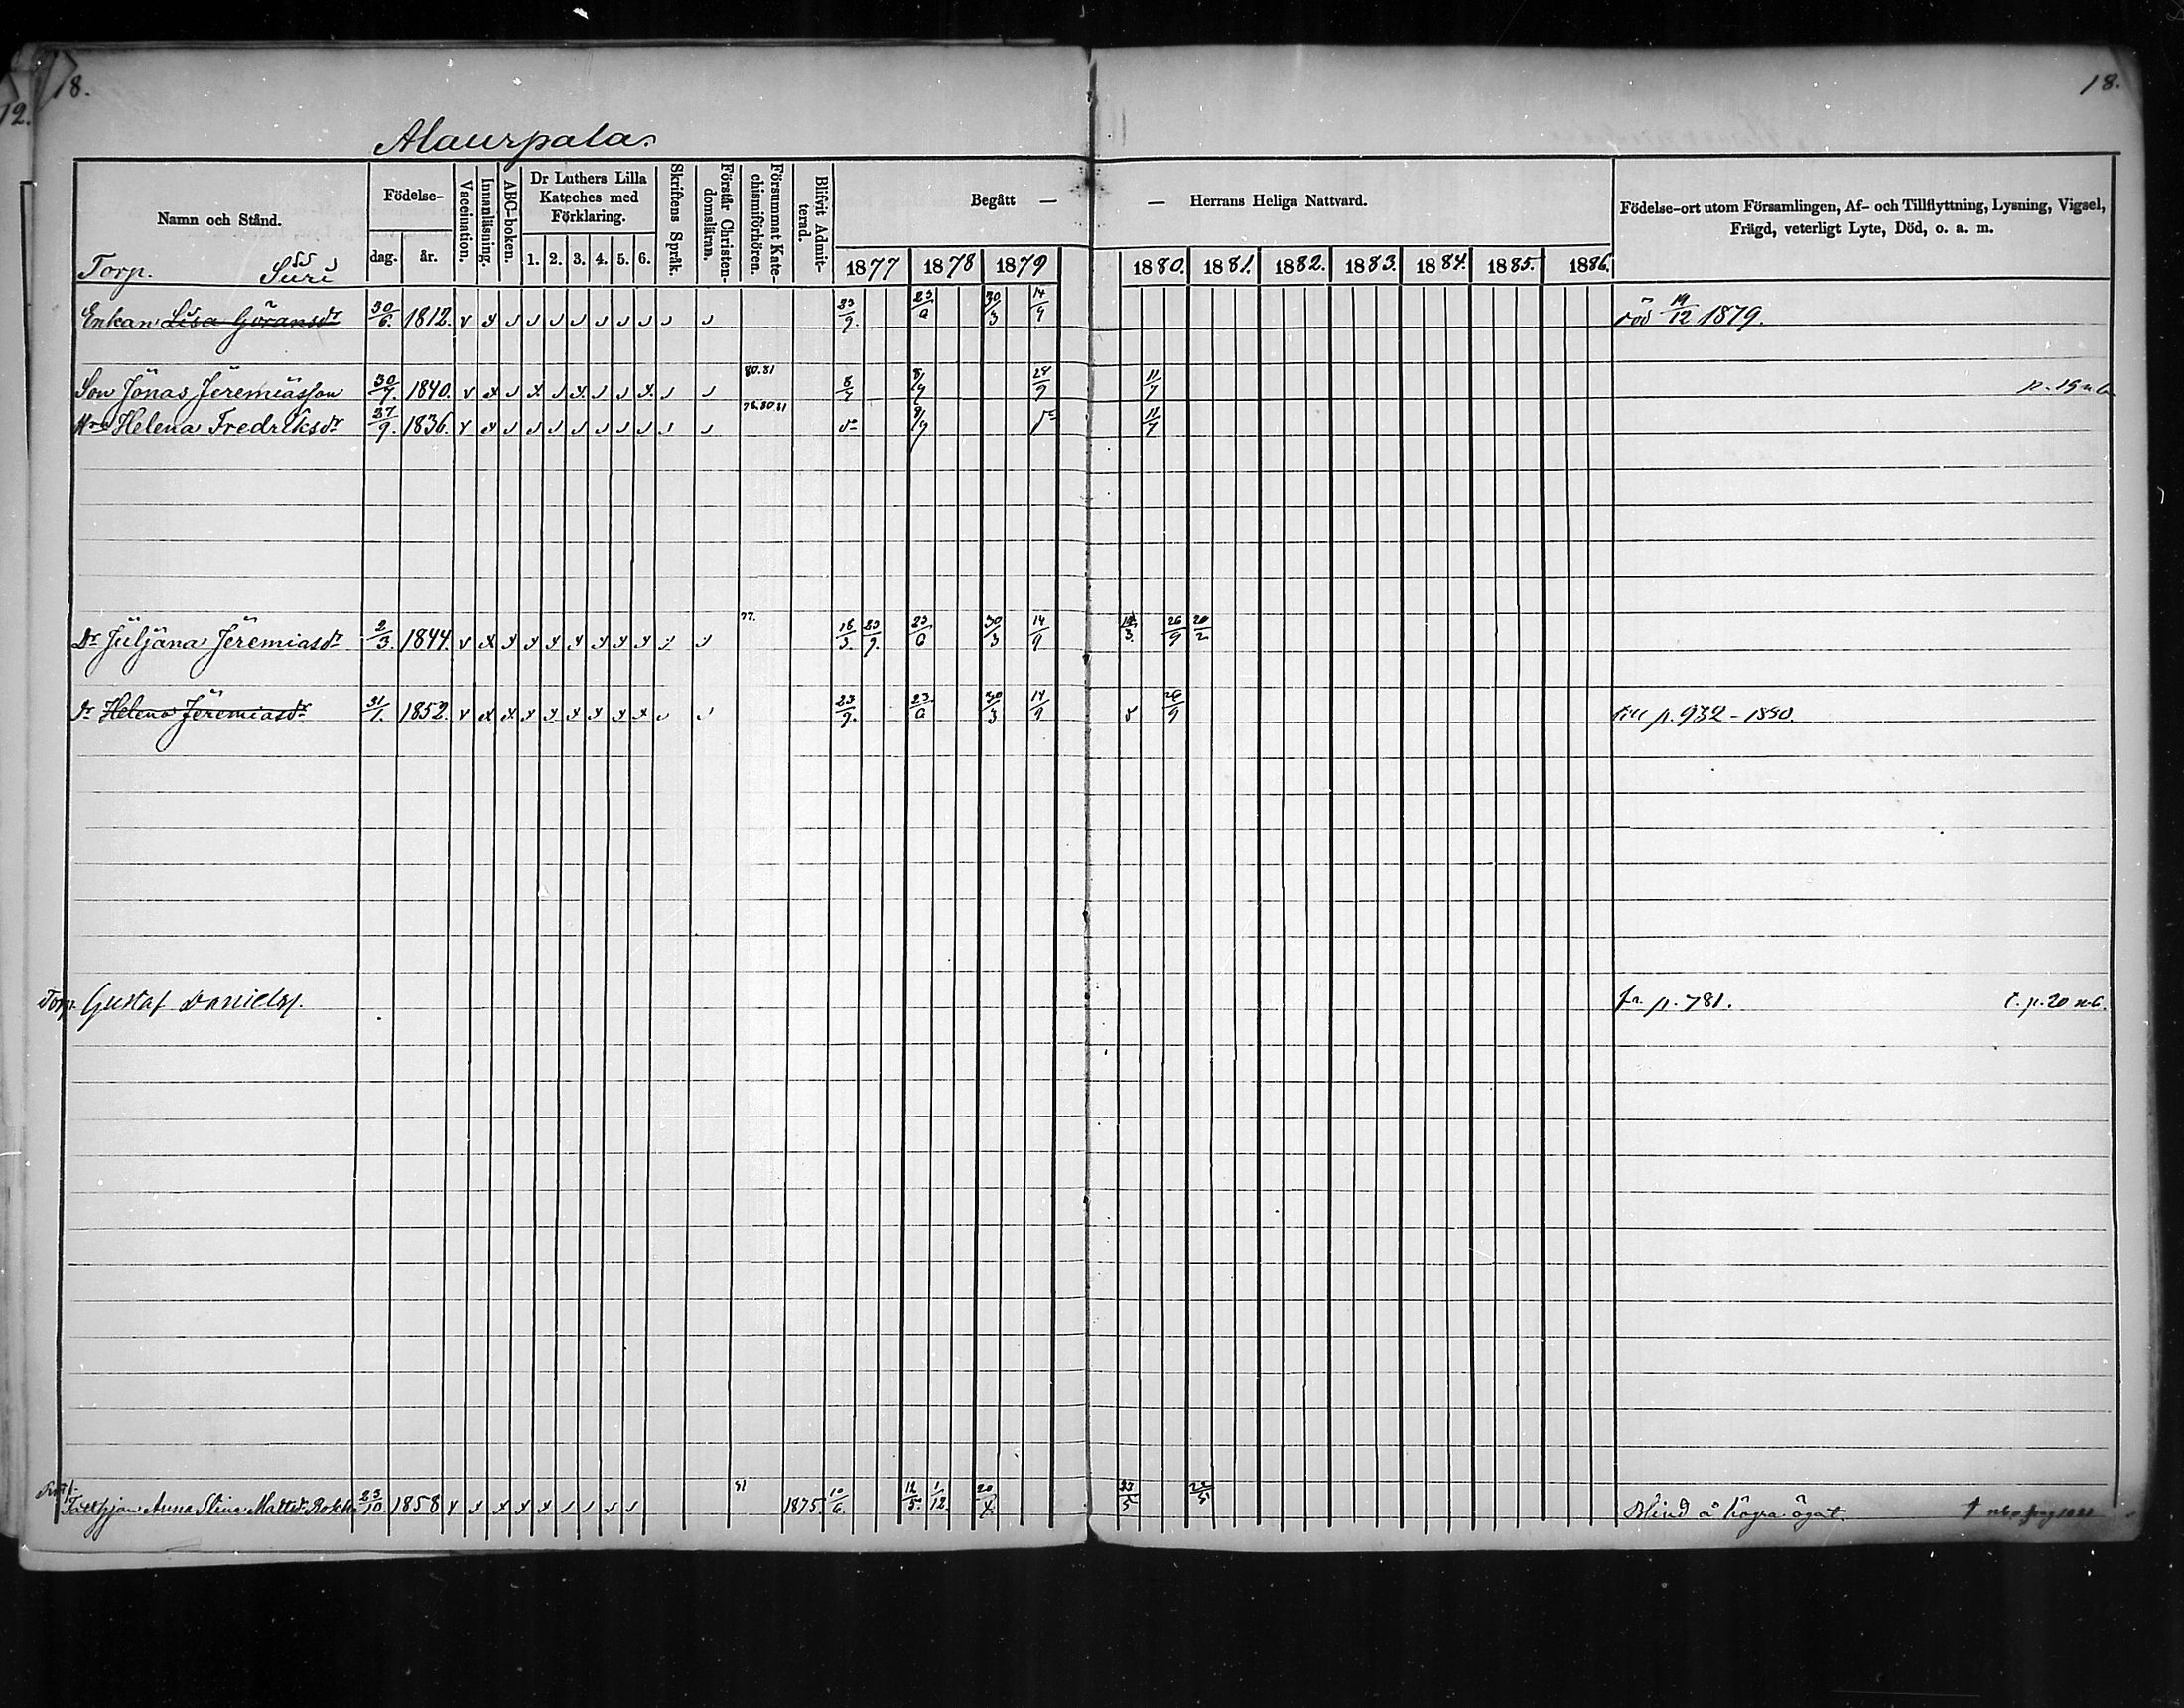 18.
18.
12.
Alaurpala.
Namn och Stånd.
Födelse-
dag.
år.
Vaccination.
Innanläsning.
ABC-boken.
Dr Luthers Lilla Kateches med Förklaring.
1. 2. 3. 4. 5. 6.
Skriftens Språk.
Förstår Christendomsläran.
Försummat Katechismiförhören.
Blifvit Admitterad.
Begått —
— Herrans Heliga Nattvard.
1877 1878 1879 1880. 1881. 1882. 1883. 1884. 1885. 1886.
Födelse-ort utom Församlingen, Af- och Tillflyttning, Lysning, Vigsel,
Frägd, veterligt Lyte, Död, o. a. m.
Torp. Suri
Enkan Lisa Göransdr 30/6. 1812. 23/9. 30/3 14/9 död 19/12 1879.
Son Jonas Jeremiasson 30/7. 1840. 80.81 11/7
Helena Fredriksdr 27/9. 1836. 78.80.81 11/7
Dr Juljana Jeremiasdr 2/3. 1844. 77. 18/3. 23/9. 30/3 14/9 26/9 20/2
Dr Helena Jeremiasdr 31/1. 1852. 23/9. 30/3 14/9 26/9 till p. 932-1880.
Torp. Gustaf Danielsf. fr. p. 781. t. p. 20 n.6.
Anna Stina Mattsd. 23/10. 1858 81 1875. 10/6. 12/5. 1/12 20/4. 23/5 Blind å högra ögat.